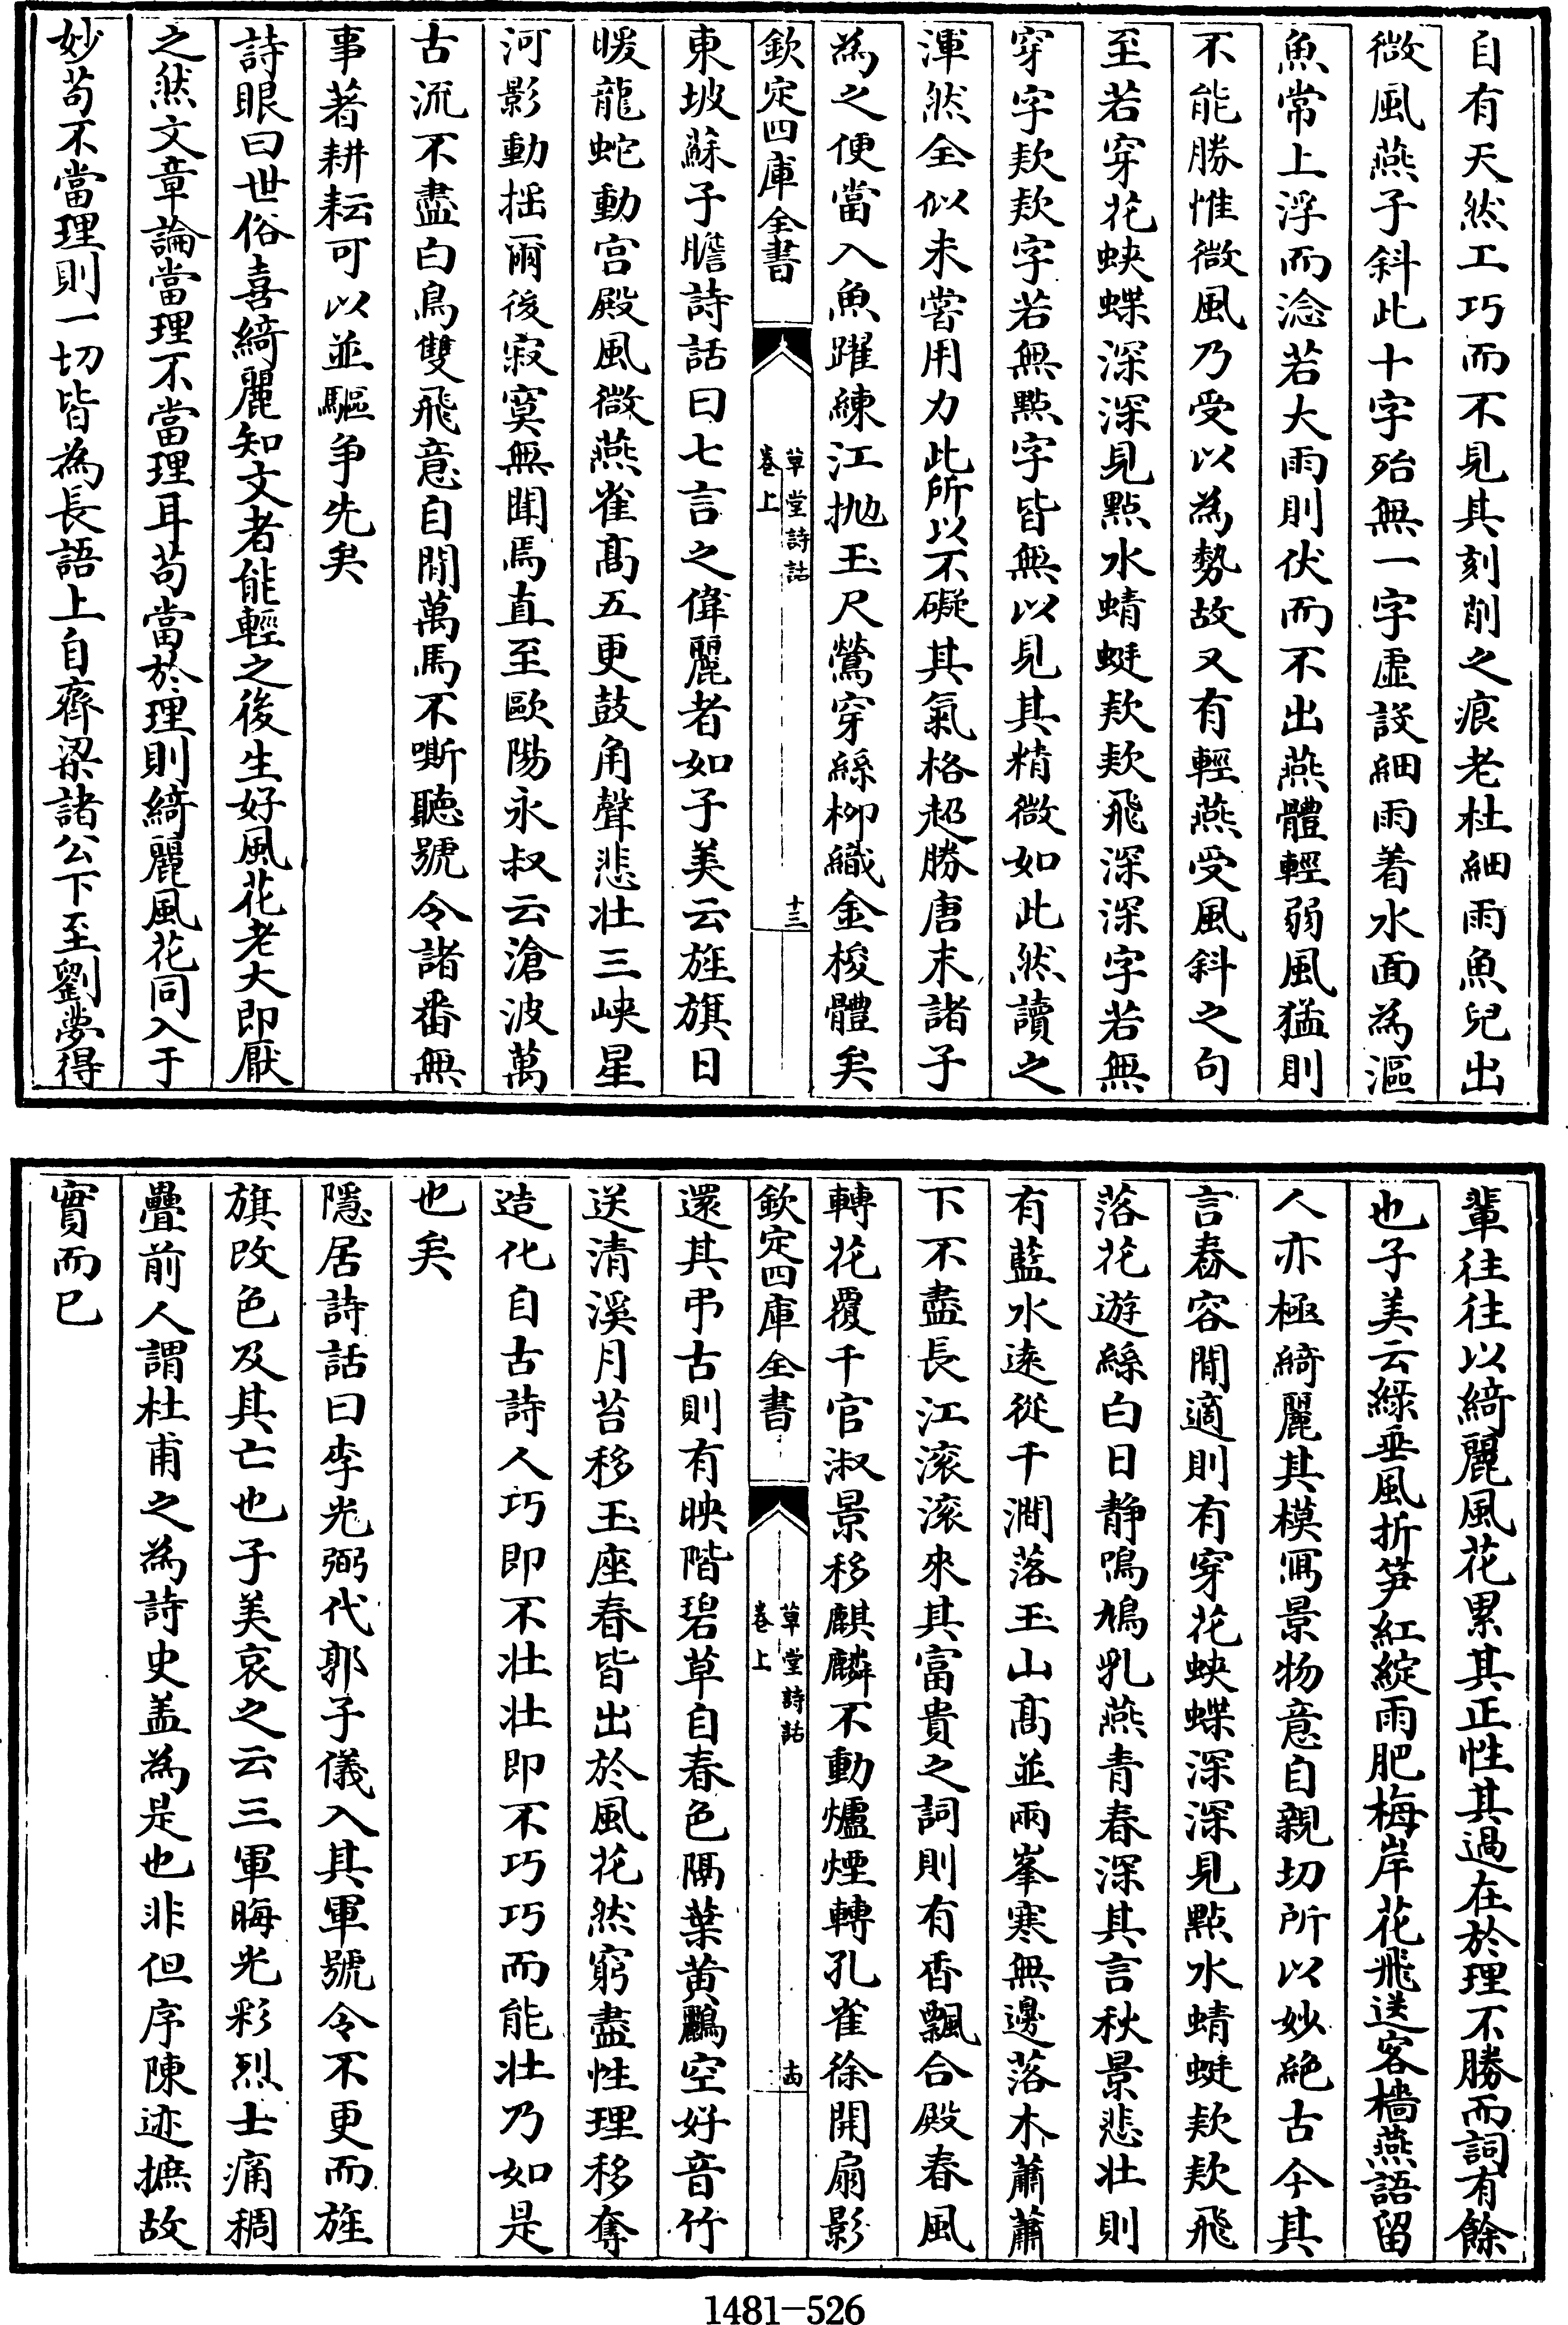 自有天然工巧而不見其刻削之痕老杜細雨魚兒出
微風燕子斜此十字殆無一字虛設細雨着水面為漚
魚常上浮而淰若大雨則伏而不出燕體輕弱風猛則
不能勝惟微風乃受以為勢故又有輕燕受風斜之句
至若穿花蛺蝶深深見點水蜻蜓欵欵飛深深字若無
穿字欵欵字若無點字皆無以見其精微如此然讀之
渾然全似未甞用力此所以不礙其氣格超勝唐末諸子
為之便當入魚躍練江抛玉尺鶯穿絲柳織金梭體矣
欽定四庫全書
草堂詩話
卷上
十三
東坡蘇子瞻詩話曰七言之偉麗者如子美云旌旗日
暖龍蛇動宫殿風微燕雀髙五更鼓角聲悲壯三峽星
河影動揺爾後寂寞無聞焉直至歐陽永叔云滄波萬
古流不盡白鳥雙飛意自閒萬馬不嘶聽號令諸番無
事著耕耘可以並驅争先矣
詩眼曰世俗喜綺麗知文者能輕之後生好風花老大即厭
之然文章論當理不當理耳苟當於理則綺麗風花同入于
妙苟不當理則一切皆為長語上自齊梁諸公下至劉夢得
輩往往以綺麗風花累其正性其過在於理不勝而詞有餘
也子美云緑垂風折笋紅綻雨肥梅岸花飛送客檣燕語留
人亦極綺麗其模冩景物意自親切所以妙絶古今其
言春容閒適則有穿花蛺蝶深深見點水蜻蜓欵欵飛
落花遊絲白日静鳴鳩乳燕青春深其言秋景悲壯則
有藍水逺從千澗落玉山髙並兩峯寒無邊落木蕭蕭
下不盡長江滚滚來其富貴之詞則有香飄合殿春風
轉花覆千官淑景移麒麟不動爐煙轉孔雀徐開扇影
欽定四庫全書
草堂詩話
卷上
十四
還其弔古則有映階碧草自春色隔葉黄鸝空好音竹
送清溪月苔移玉座春皆出於風花然窮盡性理移奪
造化自古詩人巧即不壯壯即不巧巧而能壯乃如是
也矣
隱居詩話曰李光弼代郭子儀入其軍號令不更而旌
旗改色及其亡也子美哀之云三軍晦光彩烈士痛稠
疊前人謂杜甫之為詩史盖為是也非但序陳迹摭故
實而已
1481-526